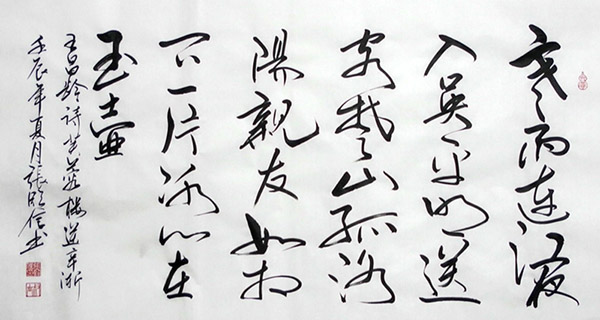 寒雨連江夜
入吴平明送
客楚山孤洛
陽親友如相
问一片冰心在
玉壶
王昌齡詩芙蓉楼送辛渐
壬辰年夏月張信书